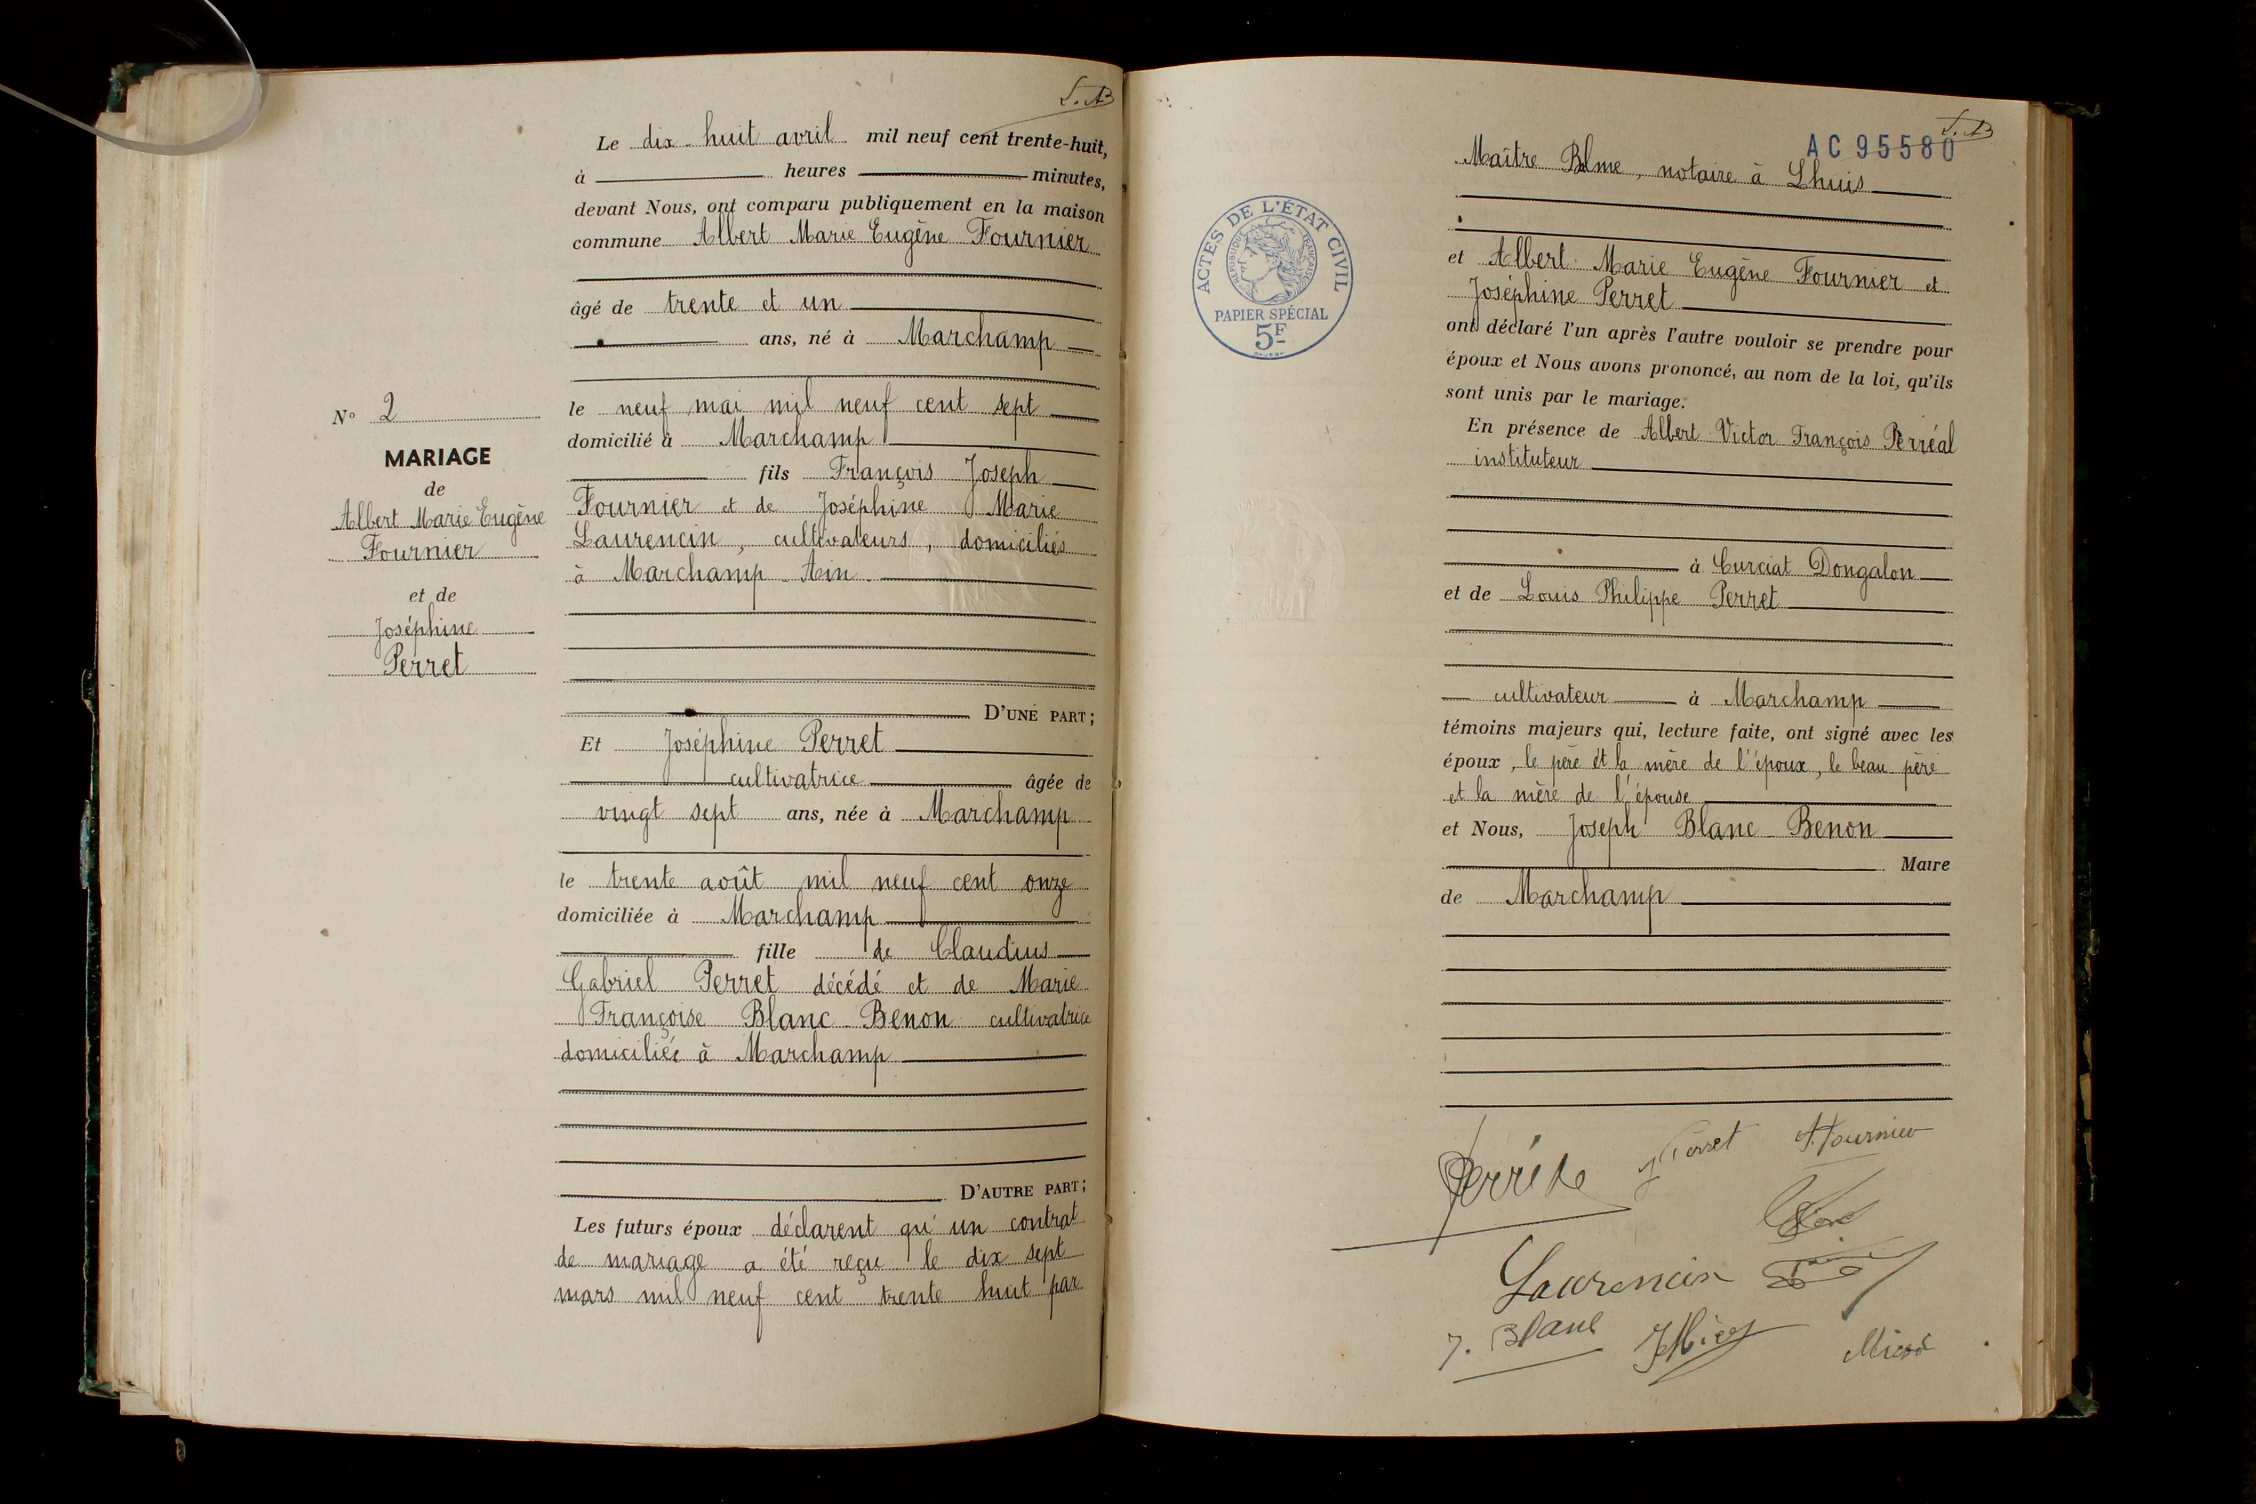 Le dix-huit avril mil neuf cent trente-huit,
à heures minutes,
devant Nous, ont comparu publiquement en la maison
commune Albert Marie Eugène Fournier
âgé de trente et un
ans, né à Marchamp
le neuf mai mil neuf cent sept
domicilié à Marchamp
fils François Joseph
Fournier et de Joséphine Marie
Laurencin, cultivateurs, domiciliés
à Marchamp Ain
D'UNE PART;
Et Joséphine Perret
cultivatrice âgée de
vingt sept ans, née à Marchamp
le trente août mil neuf cent onze
domiciliée à Marchamp
fille de Claudius
Gabriel Perret décédé et de Marie
Françoise Blanc-Benon cultivatrice
domiciliée à Marchamp
D'AUTRE PART;
Les futurs époux déclarent qu'un contrat
de mariage a été reçu le dix sept
mars mil neuf cent trente huit par
N° 2
MARIAGE
de
Albert Marie Eugène
Fournier
et de
Joséphine
Perret
AC 95580
ACTES DE L'ÉTAT CIVIL
RÉPUBLIQUE FRANÇAISE
PAPIER SPÉCIAL
5F
Maître Balme, notaire à Lhuis
et Albert Marie Eugène Fournier et
Joséphine Perret
ont déclaré l'un après l'autre vouloir se prendre pour
époux et Nous avons prononcé, au nom de la loi, qu'ils
sont unis par le mariage.
En présence de Albert Victor François Perréal
instituteur
à Curciat Dongalon
et de Louis Philippe Perret
cultivateur à Marchamp
témoins majeurs qui, lecture faite, ont signé avec les
époux, le père et la mère de l'époux, le beau père
et la mère de l'épouse
et Nous, Joseph Blanc-Benon
Maire
de Marchamp
J Perret A. Fournier
Laurencin
J. Blanc